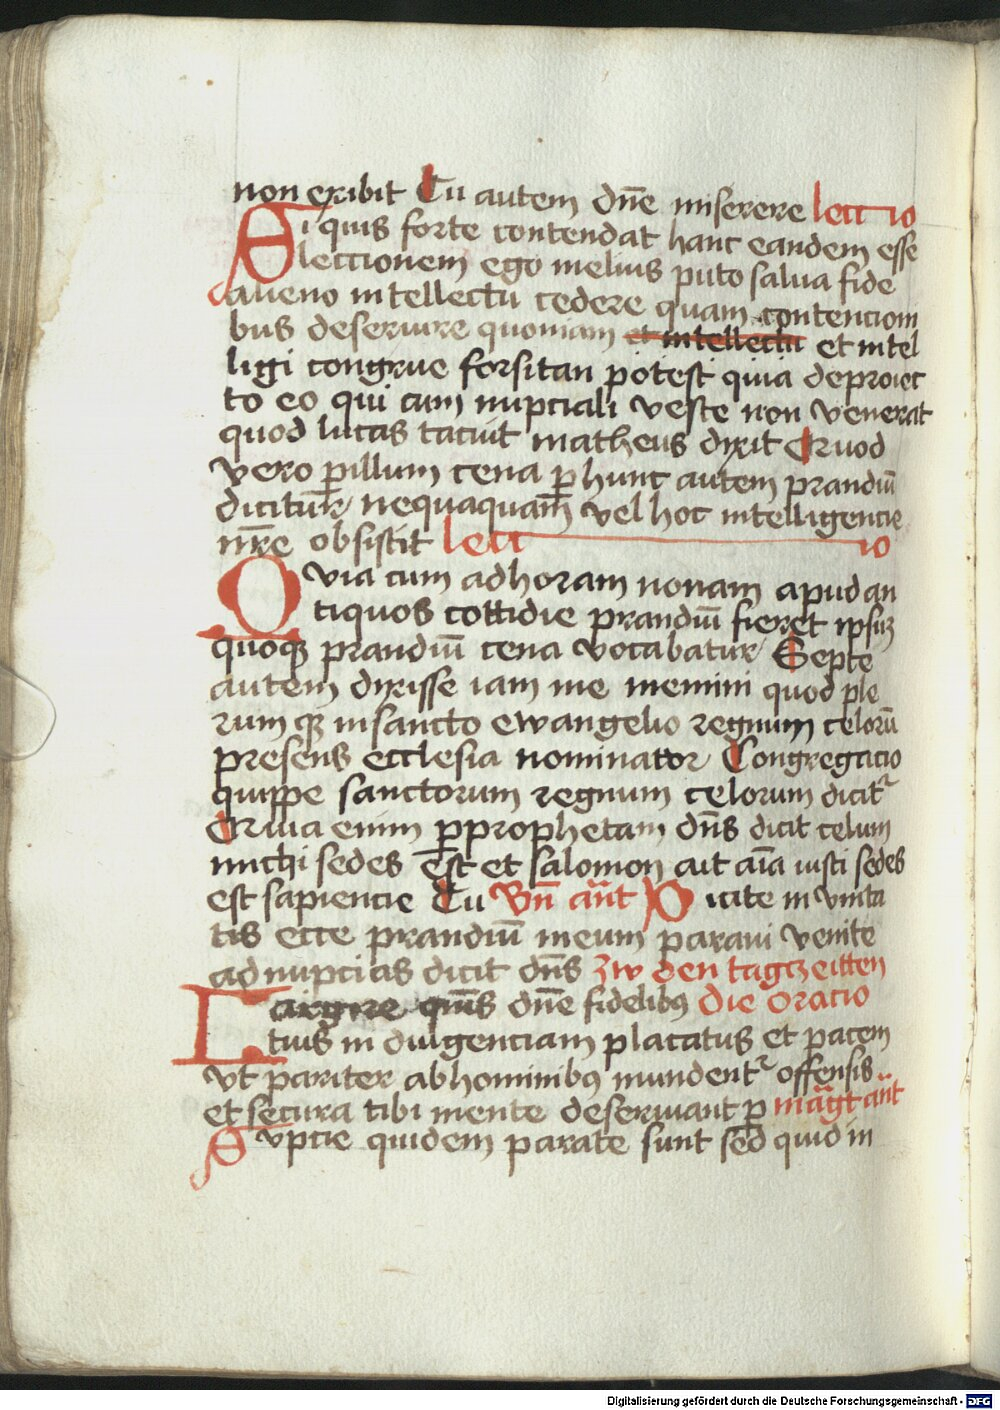 non exibit Tu autem dn̄e miserere lectio
Si quis forte contendat hanc eandem esse
lectionem ego melius puto salua fide
alieno intellectu cedere quam contencioni
bus deseruire quoniam et intellectu et intel
ligi congrue forsitan potest quia de proiec
to eo qui cum nupciali veste non venerat
quod lucas tacuit matheus dixit Quod
vero p̄ illum cena p̄ hunc autem prandiū
dicitur nequaquam̄ vel hoc intelligencie
nr̄e obsistit lectio
Quia cum ad horam nonam apud an
tiquos cottidie prandiū fieret ipsuꝫ
quoqꝫ prandiū cena vocabatur Sepe
autem dixisse iam me memini quod ple
rumqꝫ in sancto ewangelio regnum celorū
presens ecclesia nominator Congregacio
quippe sanctorum regnum celorum dicit͛
Quia enim p̄ prophetam dn̄s dicit celum
michi sedes est et salomon ait aīa iusti sedes
est sapiencie Tu Bn̄ an̄t Dicite in vita
tis ecce prandiū meum paraui venite
ad nupcias dicit dn̄s zw den tagczeitten
Largire qm̄s dn̄e fidelibꝰ die oracio
tuis indulgenciam placatus et pacem
vt pariter ab hominibꝰ mundent͛ offensis
et secura tibi mente deseruiant p̄ mag̃t an̄t
Nupcie quidem parate sunt sed qui in
Digitalisierung gefördert durch die Deutsche Forschungsgemeinschaft - DFG